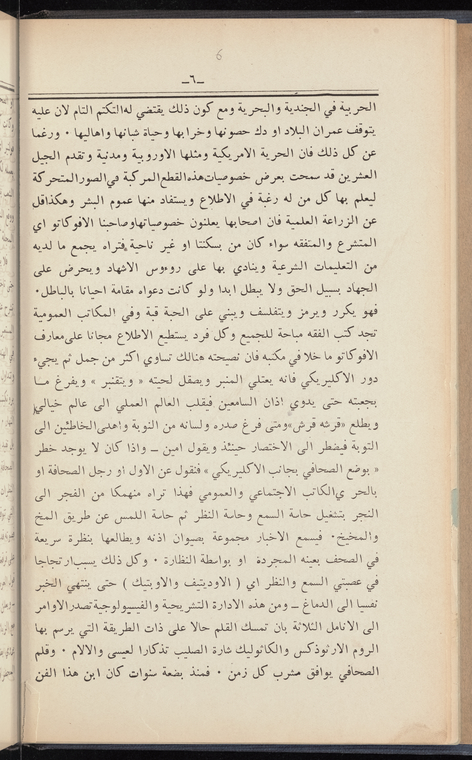 6
—٦—
الحربية في الجندية والبحرية ومع كون ذلك يقتضي له التكتم التام لان عليه
يتوقف عمران البلاد او دك حصونها وخرابها وحياة شبانها واهاليها . ورغما
عن كل ذلك فان الحرية الامريكية ومثلها الاوروبية ومدنية وتقدم الجيل
العشرين قد سمحت بعرض خصوصيات هذه القطع المركبة في الصور المتحركة
ليعلم بها كل من له رغبة في الاطلاع ويستفاد منها عموم البشر وهكذا قل
عن الزراعة العلمية فان اصحابها يعلنون خصوصياتها وصاحبنا الافوكاتو اي
المتشرع والمتفقه سواء كان من بسكنتا او غير ناحية فتراه يجمع ما لديه
من التعليمات الشرعية وينادي بها على روءوس الاشهاد ويحرض على
الجهاد بسبيل الحق ولا يبطل ابدا ولو كانت دعواه مقامة احيانا بالباطل .
فهو يكرر ويرمز ويتفلسف ويبني على الحبة قبة وفي المكاتب العمومية
تجد كتب الفقه مباحة للجميع وكل فرد يستطيع الاطلاع مجانا على معارف
الافوكاتو ما خلا في مكتبه فان نصيحته هنالك تساوي اكثر من جمل ثم يجيء
دور الاكليريكي فانه يعتلي المنبر ويصقل لحيته « ويتقنبر » ويفرغ مـا
بجعبته حتى يدوي اذان السامعين فيقلب العالم العملي الى عالم خيالي
ويطلع «قرشه قرش» ومتى فرغ صدره ولسانه من التوبة واهدى الخاطئين الى
التوبة فيضطر الى الاختصار حينئذ ويقول امين — واذا كان لا يوجد خطر
« بوضع الصحافي بجانب الاكليريكي » فنقول عن الاول او رجل الصحافة او
بالحر ي الكاتب الاجتماعي والعمومي فهذا تراه منهمكا من الفجر الى
النجر بتشغيل حاسة السمع وحاسة النظر ثم حاسة اللمس عن طريق المخ
والمخيخ . فيسمع الاخبار مجموعة بصيوان اذنه ويطالعها بنظرة سريعة
في الصحف بعينه المجردة او بواسطة النظارة . وكل ذلك يسبب ارتجاجا
في عصبتي السمع والنظر اي ( الاوديتيف والاوبتيك ) حتى ينتهي الخبر
نفسيا الى الدماغ — ومن هذه الادارة التشريحية والفيسيولوجية تصدر الاوامر
الى الانامل الثلاثة بان تمسك القلم حالا على ذات الطريقة التي يرسم بها
الروم الارثوذكس والكاثوليك شارة الصليب تذكارا لعيسى والالام . وقلم
الصحافي يوافق مشرب كل زمن . فمنذ بضعة سنوات كان ابن هذا الفن